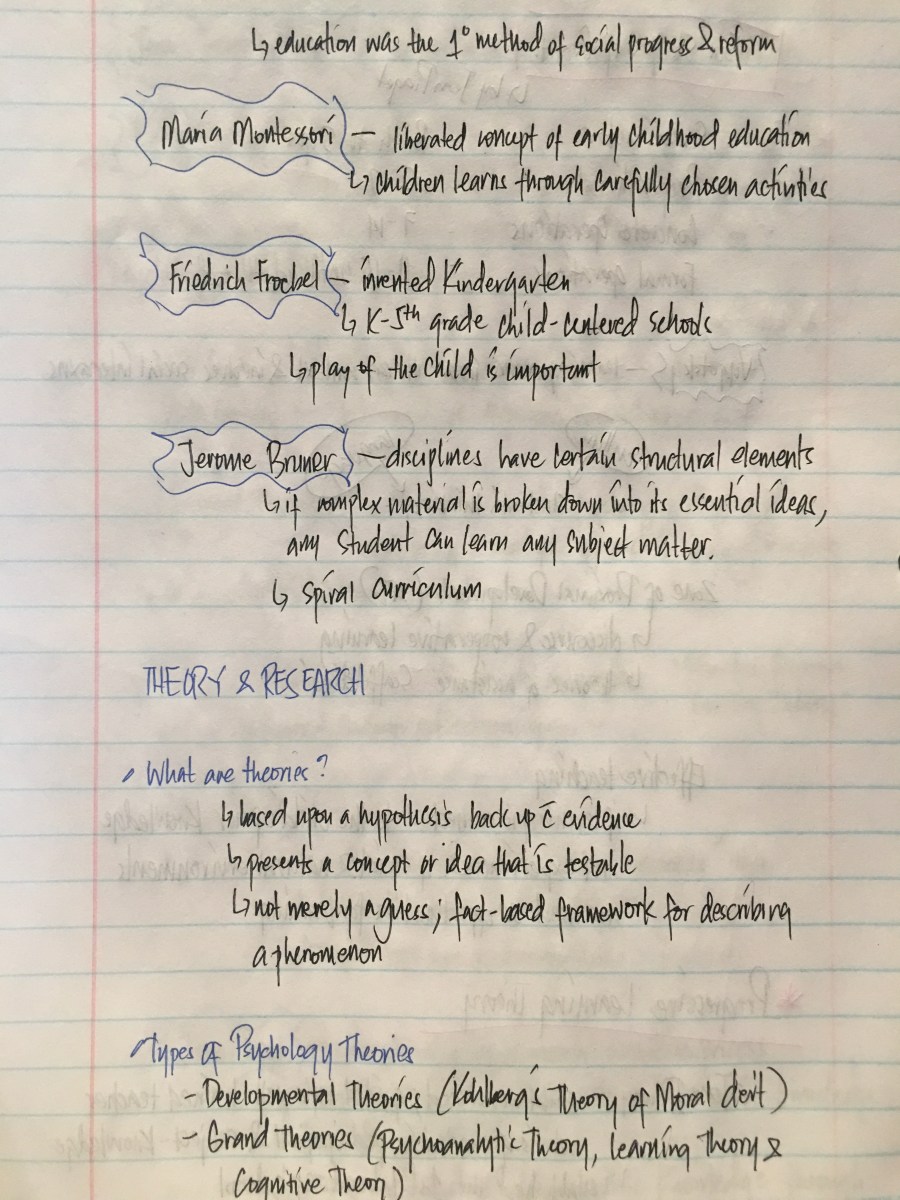 ↳ education was the 1° method of social progress & reform
Maria Montessori — liberated concept of early childhood education
↳ children learns through carefully chosen activities
Friedrich Froebel — invented Kindergarten
↳ K-5th grade child-centered schools
↳ play of the child is important
Jerome Bruner — disciplines have certain structural elements
↳ if complex material is broken down into its essential ideas,
any student can learn any subject matter.
↳ spiral curriculum
THEORY & RESEARCH
What are theories?
↳ based upon a hypothesis back up c̄ evidence
↳ presents a concept or idea that is testable
↳ not merely a guess; fact-based framework for describing
a phenomenon
Types of Psychology Theories
- Developmental Theories (Kohlberg's Theory of Moral dev't)
- Grand theories (Psychoanalytic Theory, Learning Theory &
Cognitive Theory)